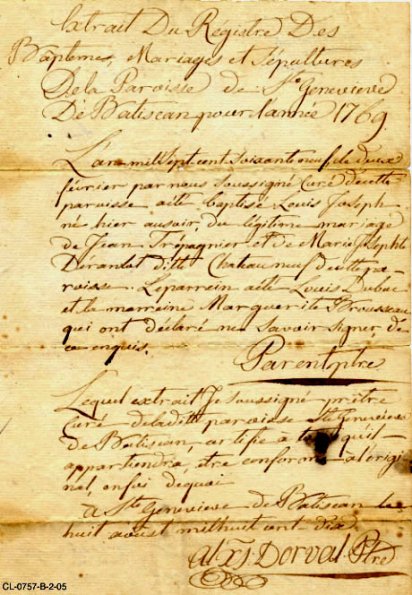 Extrait Du Régistre Des
Baptemes, Mariages et Sépultures
De la Paroisse de Ste Genevieve
De Batiscan pour l'année 1769.
L'an mil sept cent soixante neuf le deux
février par nous soussigné Curé de cette
paroisse a été baptisé Louis Joseph
né hier au soir, du légitime mariage
de Jean Trépagnier et de Marie Josephte
Derantot ditte Chateauneuf de cette pa-
roisse. Le parrein a été Louis Dubuc
et la marreine Marguerite Brousseau
qui ont déclaré ne savoir signer de
ce enquis.
Parent ptre
Lequel extrait Je soussigné prêtre
Curé de la ditte paroisse Ste Genevieve
de Batiscan, certifie à tous qu'il
appartiendra, être conforme à l'origi
nal, en foi de quoi
a Ste Genevieve de Batiscan le
huit aoust mil huit cent dix
Alxs Dorval Ptre
CL-0757-B-2-05